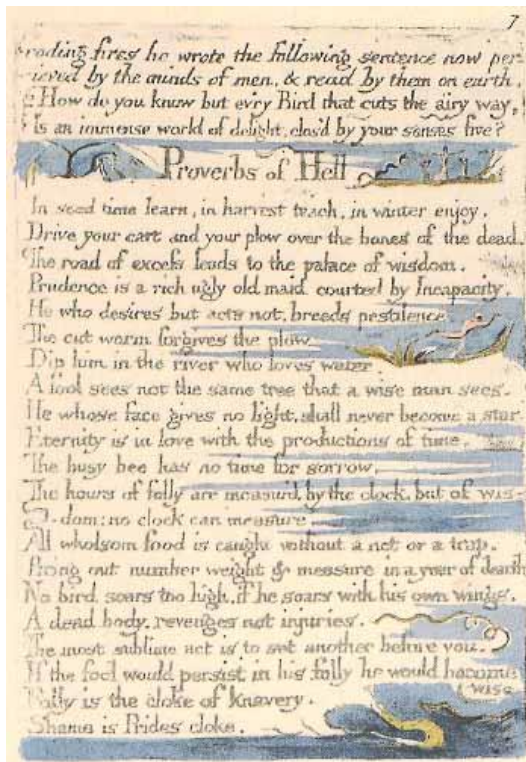 7
roding fires he wrote the following sentence now per
ieved by the minds of men, & read by them on earth.
How do you know but ev'ry Bird that cuts the airy way,
Is an immense world of delight, clos'd by your senses five?
Proverbs of Hell
In seed time learn, in harvest teach, in winter enjoy.
Drive your cart and your plow over the bones of the dead.
The road of excess leads to the palace of wisdom.
Prudence is a rich ugly old maid courted by Incapacity.
He who desires but acts not, breeds pestilence.
The cut worm forgives the plow.
Dip him in the river who loves water.
A fool sees not the same tree that a wise man sees.
He whose face gives no light, shall never become a star.
Eternity is in love with the productions of time.
The busy bee has no time for sorrow.
The hours of folly are measur'd by the clock, but of wis-
-dom: no clock can measure.
All wholsom food is caught without a net or a trap.
Bring out number weight & measure in a year of dearth
No bird soars too high, if he soars with his own wings.
A dead body, revenges not injuries.
The most sublime act is to set another before you.
If the fool would persist in his folly he would become
wise
Folly is the cloke of knavery.
Shame is Prides cloke.